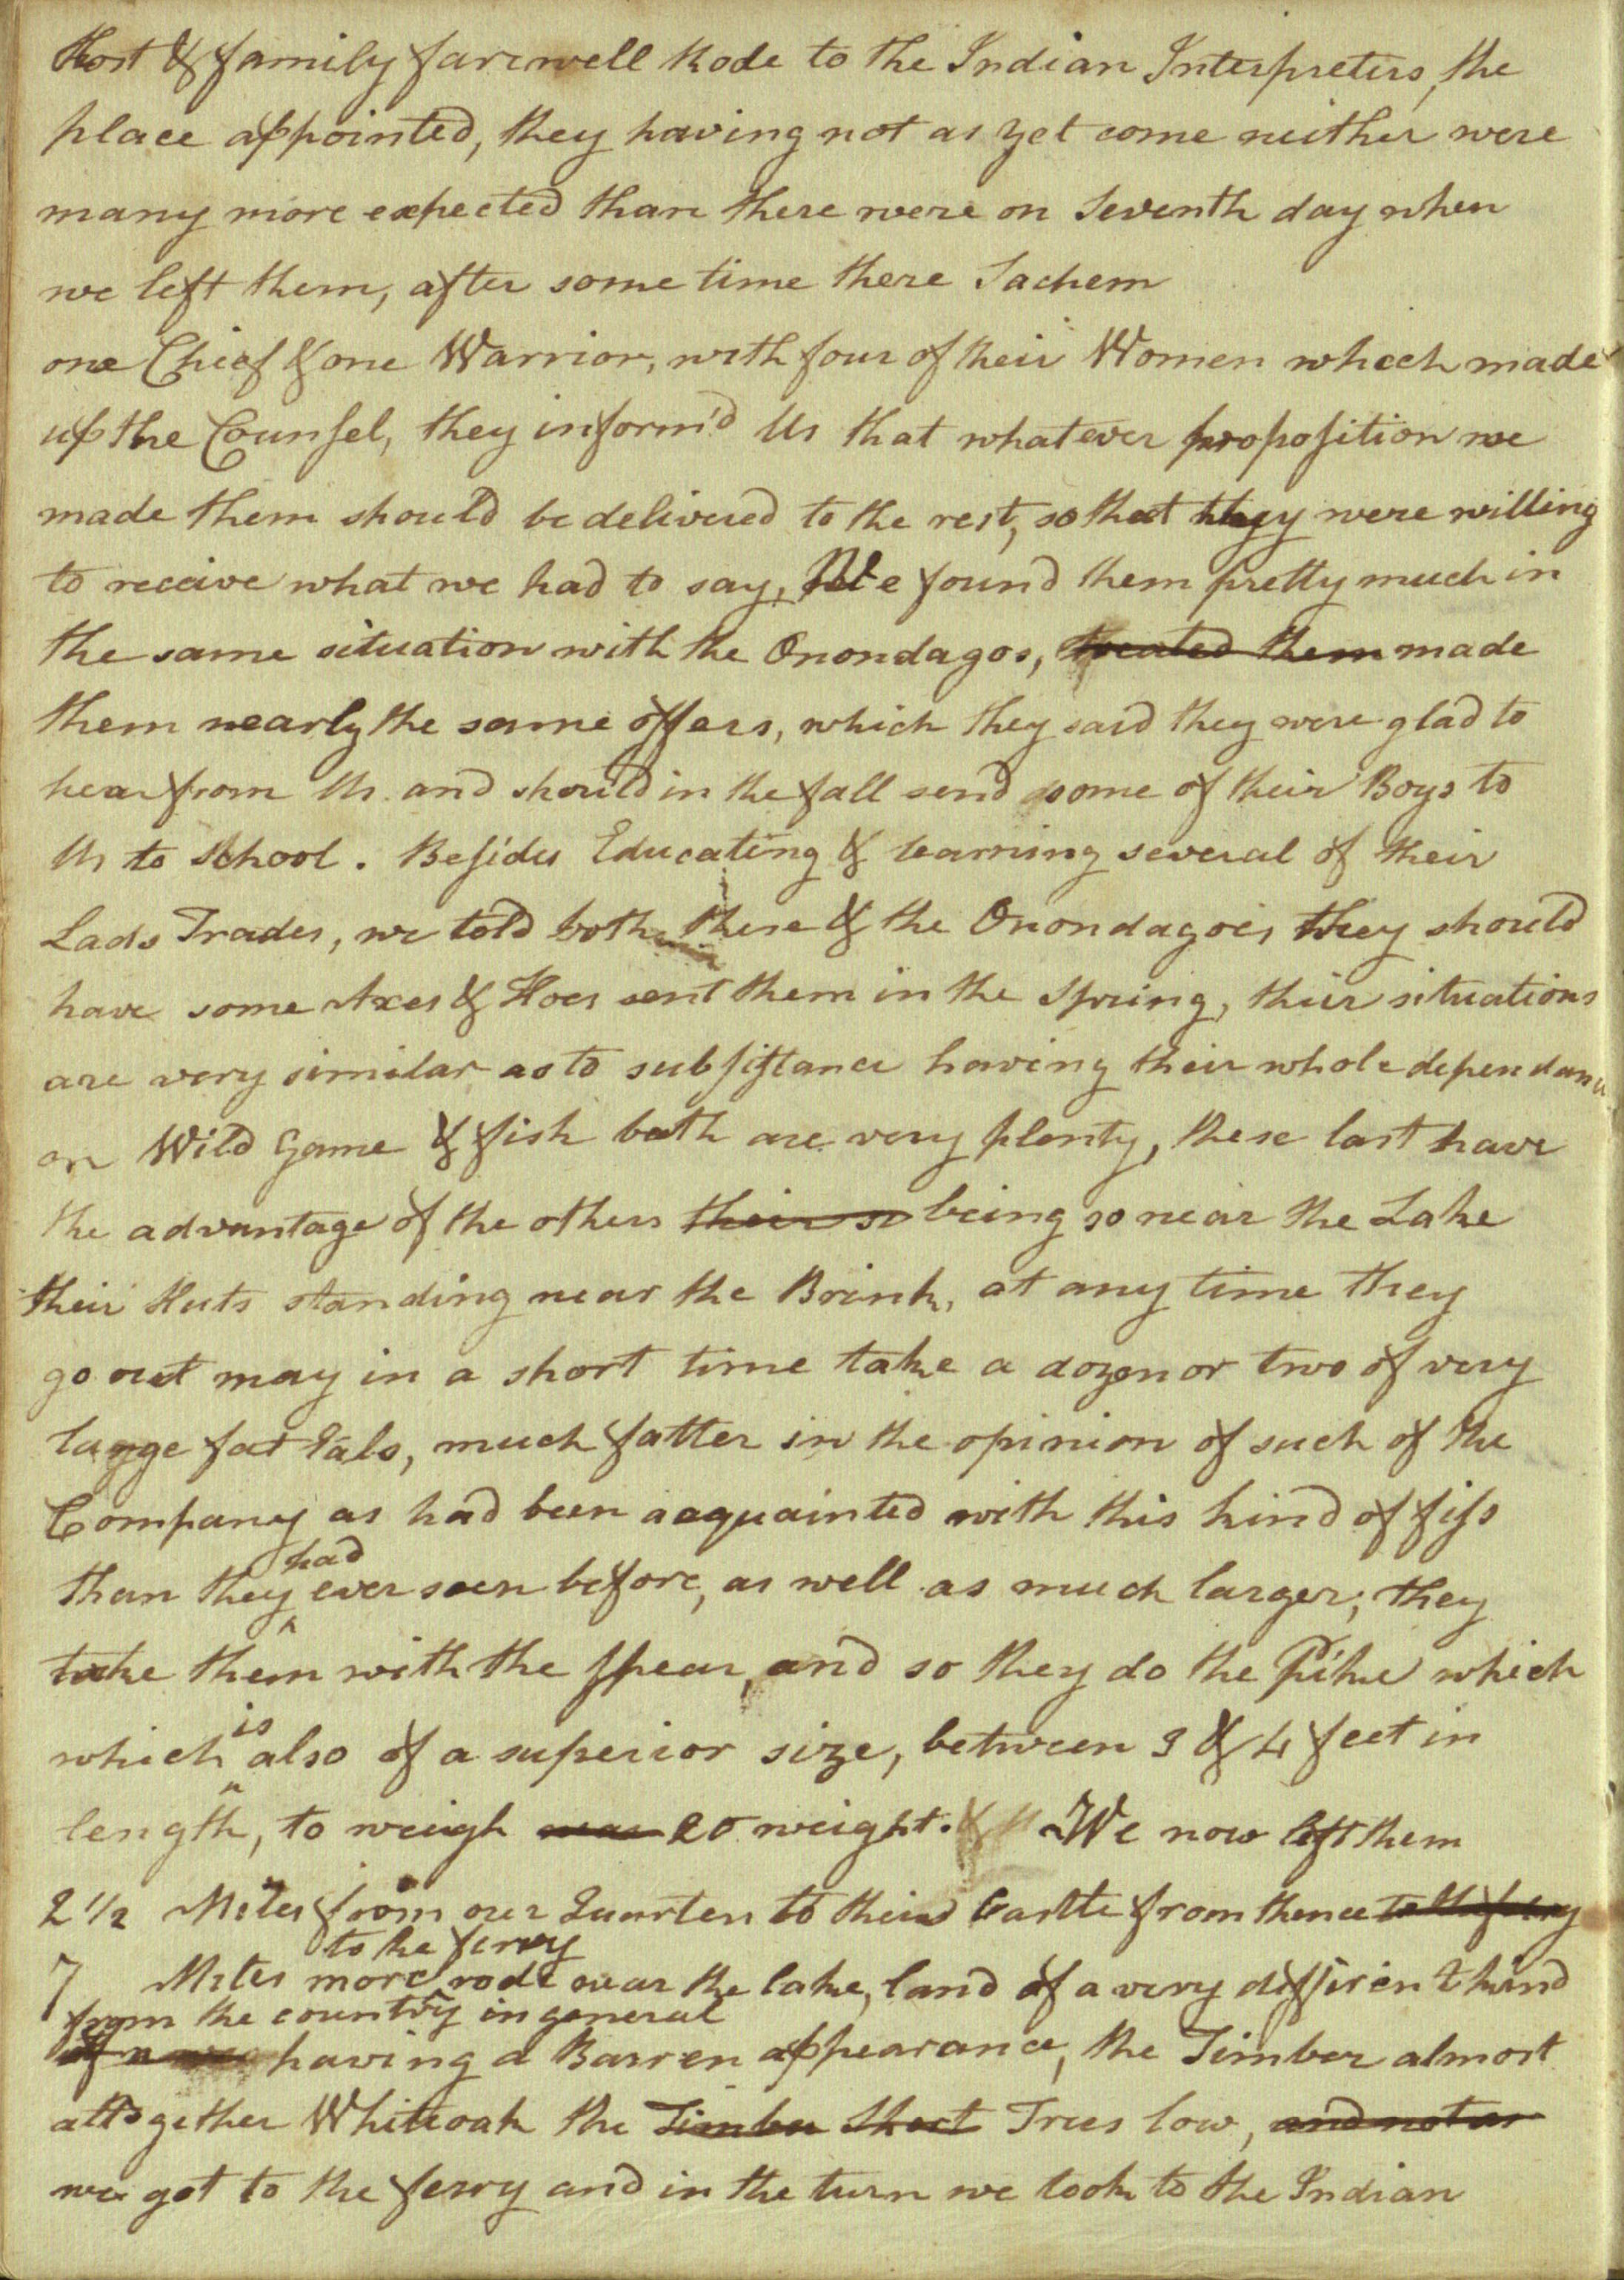 Host & family farewell Rode to the Indian Interpreters, the
place appointed, they having not as yet come neither were
many more expected than there were on Seventh day when
we left them, after some time there Sachem
one Chief & one Warrior, with four of their Women which made
up the Counsel, they inform'd Us that whatever proposition we
made them should be delivered to the rest, so that they were willing
to receive what we had to say, We found them pretty much in
the same situation with the Onondagos, treated them made
them nearly the same offers, which they said they were glad to
hear from Us and should in the fall send some of their Boys to
Us to School. Besides Educating & learning several of their
Lads Trades, we told both these & the Onondagoes they should
have some Axes & Hoes sent them in the Spring, their situations
are very similar as to subsistance having their whole dependance
on Wild Game & fish both are very plenty, these last have
the advantage of the others their so being so near the Lake
their Huts standing near the Brink, at any time they
go out may in a short time take a dozen or two of very
large fat Eals, much fatter in the opinion of such of the
Company as had been acquainted with this kind of fish
than they had ever seen before, as well as much larger; they
take them with the spear, and so they do the Pike which
which is also of a superior size, between 3 & 4 feet in
length, to weigh near 20 weight. We now left them
2 1/2 Miles from our Quarters to their Castle from thence to the ferry
to the ferry
7 Miles more rode near the lake, land of a very different kind
from the country in general
having a Barren appearance, the Timber almost
alltogether Whiteoak the Timber short Trees low, and not as
we got to the ferry and in the turn we took to the Indian